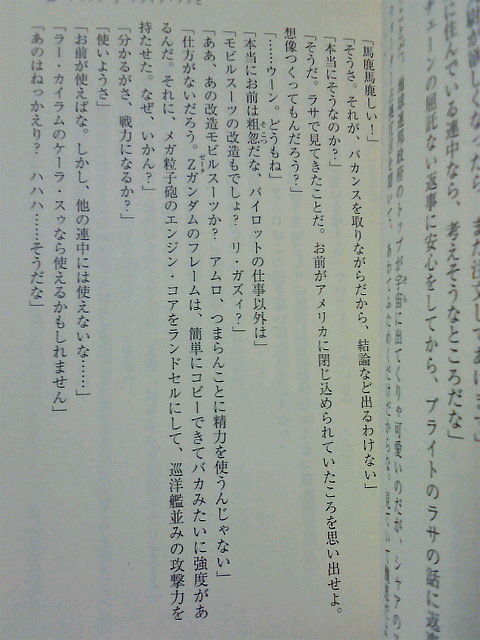 に住んでいる連中なら、考えそうなところだな」
チェーンの屈託ない返事に安心をしてから、ブライトのラサの話に
「馬鹿馬鹿しい！」
「そうさ。それが、バカンスを取りながらだから、結論など出るわけない」
「本当にそうなのか？」
「そうだ。ラサで見てきたことだ。お前がアメリカに閉じ込められていたころを思い出せよ。
想像つくってもんだろう？」
「……ウーン。どうもね」
「本当にお前は粗忽だな、パイロットの仕事以外は」
「モビルスーツの改造もでしょ？　リ・ガズィ？」
「ああ、あの改造モビルスーツか？　アムロ、つまらんことに精力を使うんじゃない」
「仕方がないだろう。Ｚガンダムのフレームは、簡単にコピーできてバカみたいに強度があ
るんだ。それに、メガ粒子砲のエンジン・コアをランドセルにして、巡洋艦並みの攻撃力を
持たせた。なぜ、いかん？」
「分かるがさ、戦力になるか？」
「使いようさ」
「お前が使えばな。しかし、他の連中には使えないな……」
「ラー・カイラムのケーラ・スゥなら使えるかもしれません」
「あのはねっかえり？　ハハハ……そうだな」